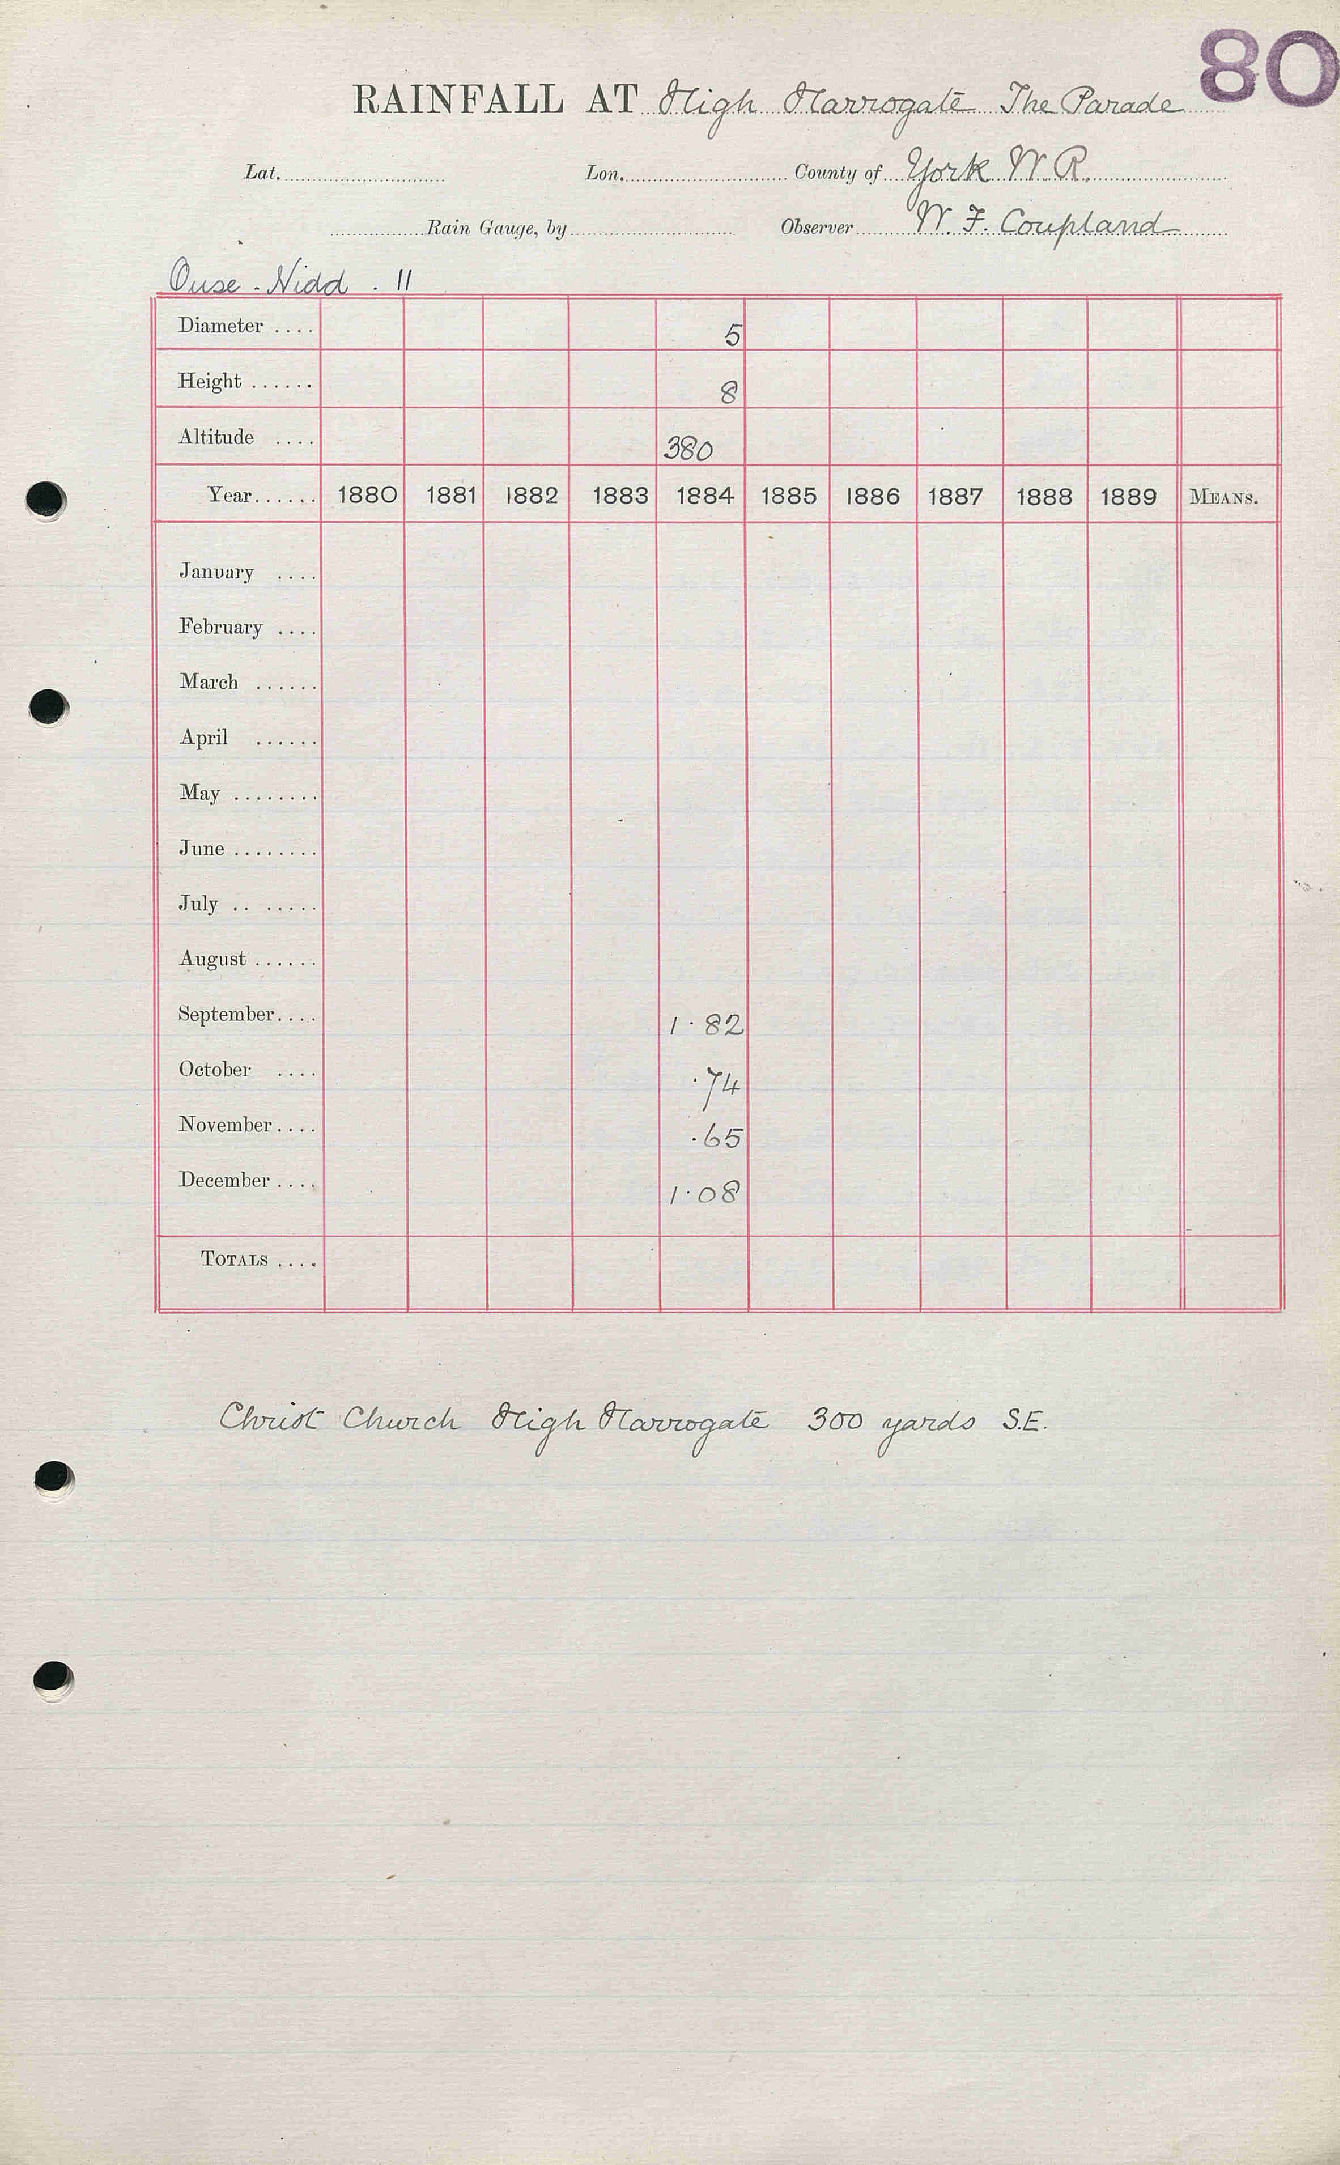 80
RAINFALL AT High Harrogate The Parade
Lat. Lon. County of York W. R.
Rain Gauge, by Observer W. F. Coupland
Ouse - Nidd . 11
Diameter .... 5
Height ...... 8
Altitude .... 380
Year...... 1880 1881 1882 1883 1884 1885 1886 1887 1888 1889 MEANS.
January ....
February ....
March ......
April ......
May ........
June ........
July .. .....
August ......
September.... 1.82
October .... .74
November.... .65
December .... 1.08
TOTALS ....
Christ Church High Harrogate 300 yards S.E.